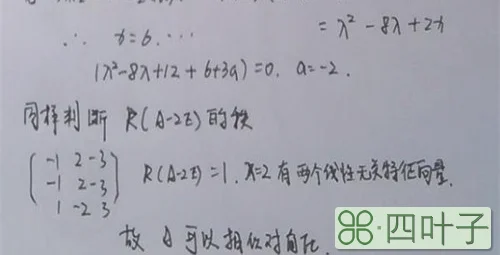 = λ² - 8λ + 2x
∴ x=6. ...
(λ²-8λ+12+6+3a)=0. a=-2.
同样判断 R(A-2E) 的秩
-1 2 -3
-1 2 -3
1 -2 3
R(A-2E)=1. λ=2 有两个线性无关特征向量.
故 A 可以相似对角化.
四叶子